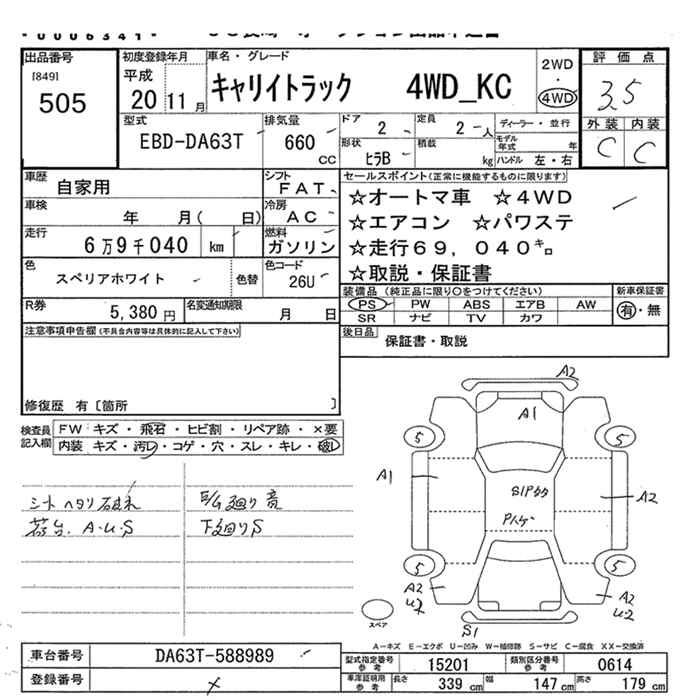 出品番号
[849]
505
初度登録年月
平成
20 11月
車名・グレード
キャリイトラック 4WD_KC
2WD
・
4WD
評価点
3.5
外装 内装
C C
型式
EBD-DA63T
排気量
660
CC
ドア 2
形状 ヒラB
定員 2 人
積載 kg
ディーラー・並行
モデル年式 年
ハンドル 左・右
車歴
自家用
シフト
FAT
車検
年 月( 日)
冷房
AC
走行
6万9千040 km
燃料
ガソリン
色
スペリアホワイト
色替
色コード
26U
R券
5,380円
名変通知期限
月 日
セールスポイント(正常に機能するものに限ります)
☆オートマ車 ☆4WD
☆エアコン ☆パワステ
☆走行69,040㌔
☆取説・保証書
装備品(純正品に限り○をつけてください)
PS PW ABS エアB AW
SR ナビ TV カワ
新車保証書
有・無
後日品
保証書・取説
注意事項申告欄(不具合内容等は具体的に記入して下さい)
修復歴 有〔箇所 〕
検査員記入欄
FW キズ・飛石・ヒビ割・リペア跡・×要
内装 キズ・汚レ・コゲ・穴・スレ・キレ・破レ
シートヘタリ破れ
荷台 A・U・S
下廻りS
A2
A1
5
5
A1
A2
5
5
A2
A2
U2
S1
スペア
A-キズ E-エクボ U-凹み W-補修跡 S-サビ C-腐食 XX-交換済
車台番号 DA63T-588989
登録番号
型式指定番号参考 15201
類別区分番号参考 0614
車庫証明用参考 長さ 339cm 幅 147cm 高さ 179cm